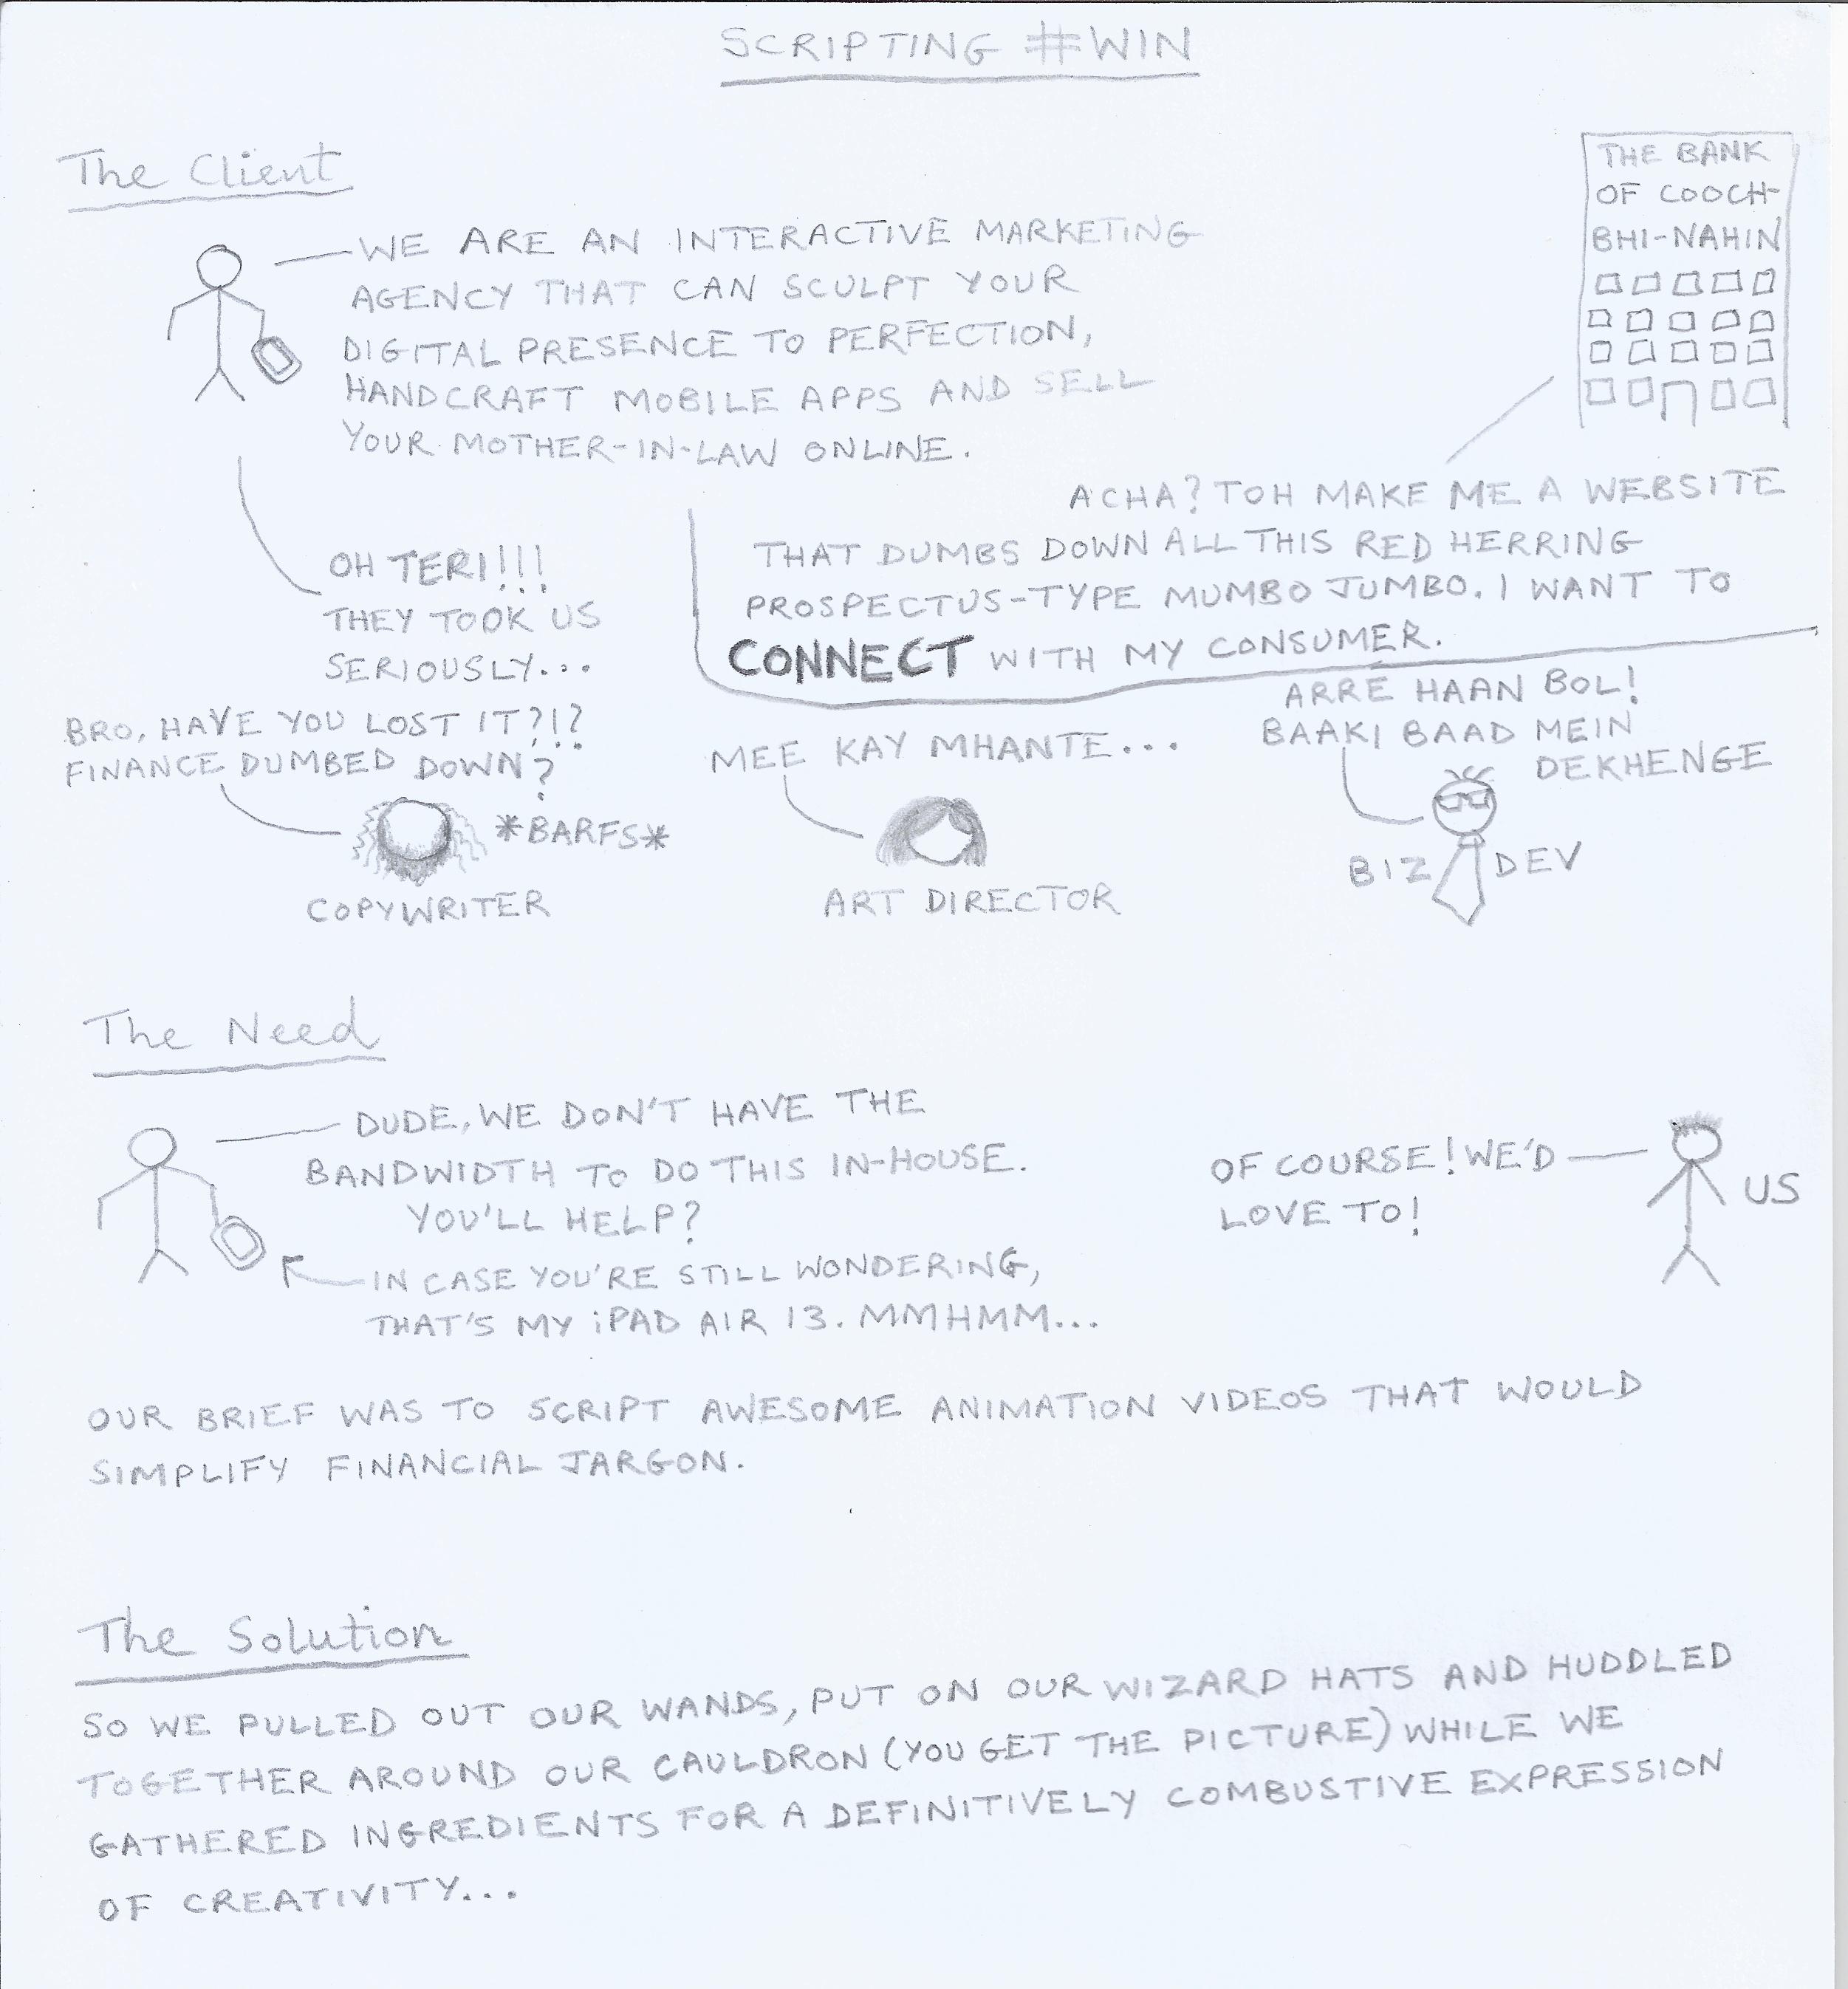 SCRIPTING #WIN
The Client
WE ARE AN INTERACTIVE MARKETING
AGENCY THAT CAN SCULPT YOUR
DIGITAL PRESENCE TO PERFECTION,
HANDCRAFT MOBILE APPS AND SELL
YOUR MOTHER-IN-LAW ONLINE.
THE BANK
OF COOCH-
BHI-NAHIN
ACHA? TOH MAKE ME A WEBSITE
THAT DUMBS DOWN ALL THIS RED HERRING
PROSPECTUS-TYPE MUMBO JUMBO. I WANT TO
CONNECT WITH MY CONSUMER.
OH TERI!!!
THEY TOOK US
SERIOUSLY...
BRO, HAVE YOU LOST IT?!?
FINANCE DUMBED DOWN?
*BARFS*
COPYWRITER
MEE KAY MHANTE...
ART DIRECTOR
ARRE HAAN BOL!
BAAKI BAAD MEIN
DEKHENGE
BIZ DEV
The Need
DUDE, WE DON'T HAVE THE
BANDWIDTH TO DO THIS IN-HOUSE.
YOU'LL HELP?
IN CASE YOU'RE STILL WONDERING,
THAT'S MY iPAD AIR 13. MMHMM...
OF COURSE! WE'D
LOVE TO!
US
OUR BRIEF WAS TO SCRIPT AWESOME ANIMATION VIDEOS THAT WOULD
SIMPLIFY FINANCIAL JARGON.
The Solution
SO WE PULLED OUT OUR WANDS, PUT ON OUR WIZARD HATS AND HUDDLED
TOGETHER AROUND OUR CAULDRON (YOU GET THE PICTURE) WHILE WE
GATHERED INGREDIENTS FOR A DEFINITIVELY COMBUSTIVE EXPRESSION
OF CREATIVITY...